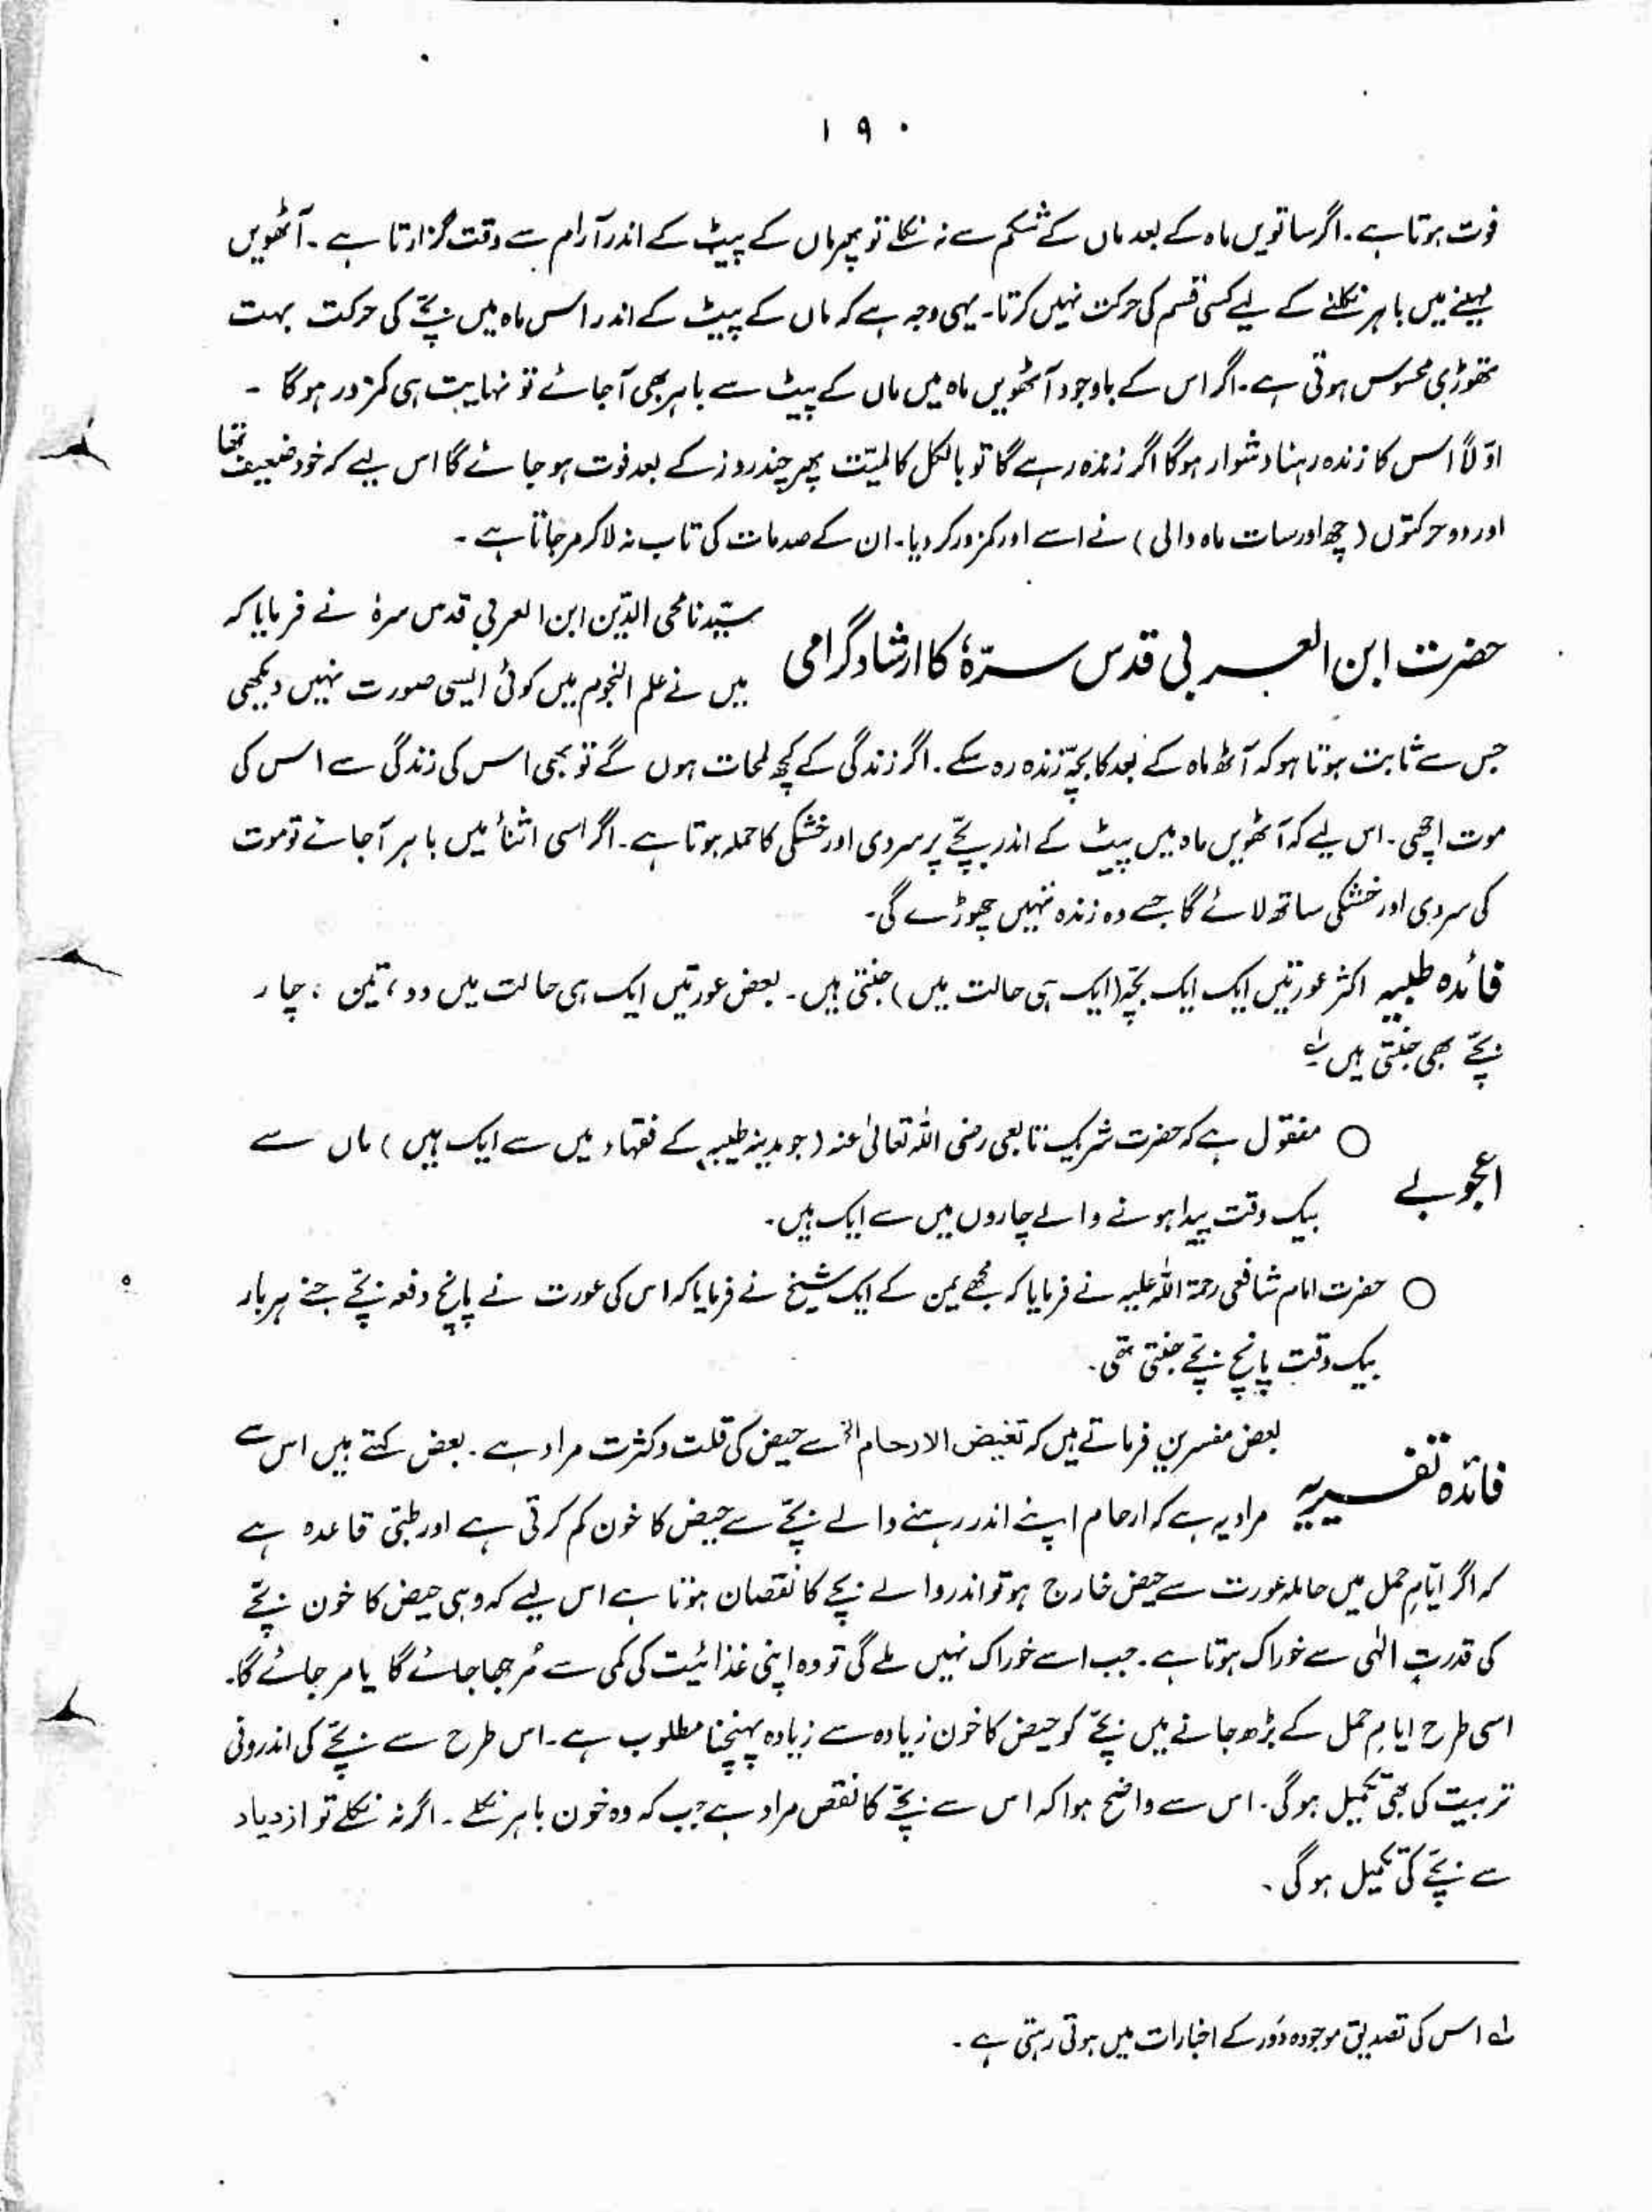 ۱۹۰
فوت ہوتا ہے۔ اگر ساتویں ماہ کے بعد ماں کے شکم سے نہ نکلے تو پھر ماں کے پیٹ کے اندر آرام سے وقت گزارتا ہے۔ آٹھویں
مہینے میں باہر نکلنے کے لیے کسی قسم کی حرکت نہیں کرتا۔ یہی وجہ ہے کہ ماں کے پیٹ کے اندر اس ماہ میں بچّے کی حرکت بہت
تھوڑی محسوس ہوتی ہے۔ اگر اس کے باوجود آٹھویں ماہ میں ماں کے پیٹ سے باہر بھی آجائے تو نہایت ہی کمزور ہوگا۔
اوّلاً اس کا زندہ رہنا دشوار ہوگا اگر زندہ رہے گا تو بالکل کالمیّت پھر چند روز کے بعد فوت ہو جائے گا اس لیے کہ خود ضعیف تھا
اور دو حرکتوں (چھ اور سات ماہ والی) نے اسے اور کمزور کر دیا۔ ان کے صدمات کی تاب نہ لا کر مر جاتا ہے۔
حضرت ابن العربی قدس سرّہٗ کا ارشادِ گرامی
سیّدنا محی الدّین ابن العربی قدس سرہٗ نے فرمایا کہ
میں نے علم النجوم میں کوئی ایسی صورت نہیں دیکھی
جس سے ثابت ہوتا ہو کہ آٹھ ماہ کے بعد کا بچّہ زندہ رہ سکے۔ اگر زندگی کے کچھ لمحات ہوں گے تو بھی اس کی زندگی سے اس کی
موت اچھی۔ اس لیے کہ آٹھویں ماہ میں پیٹ کے اندر بچّے پر سردی اور خشکی کا حملہ ہوتا ہے۔ اگر اسی اثنأ میں باہر آجائے تو موت
کی سردی اور خشکی ساتھ لائے گا جسے وہ زندہ نہیں چھوڑے گی۔
فائدہ طبیہ اکثر عورتیں ایک ایک بچّہ (ایک ہی حالت میں) جنتی ہیں۔ بعض عورتیں ایک ہی حالت میں دو، تین، چار
بچّے بھی جنتی ہیں لہ
اعجوبے
○ منقول ہے کہ حضرت شریک تابعی رضی اللہ تعالیٰ عنہ (جو مدینہ طیبہ کے فقہاء میں سے ایک ہیں) ماں سے
بیک وقت پیدا ہونے والے چاروں میں سے ایک ہیں۔
○ حضرت امام شافعی رحمۃ اللہ علیہ نے فرمایا کہ مجھے یمن کے ایک شیخ نے فرمایا کہ اس کی عورت نے پانچ دفعہ بچّے جنے ہر بار
بیک وقت پانچ بچّے جنتی تھی۔
فائدہ تفسیریہ
بعض مفسرین فرماتے ہیں کہ تغیض الارحام الخ سے حیض کی قلت و کثرت مراد ہے۔ بعض کہتے ہیں اس سے
مراد یہ ہے کہ ارحام اپنے اندر رہنے والے بچّے سے حیض کا خون کم کرتی ہے اور طبّی قاعدہ ہے
کہ اگر ایّامِ حمل میں حاملہ عورت سے حیض خارج ہو تو اندر والے بچے کا نقصان ہوتا ہے اس لیے کہ وہی حیض کا خون بچّے
کی قدرتِ الٰہی سے خوراک ہوتا ہے۔ جب اسے خوراک نہیں ملے گی تو وہ اپنی غذائیت کی کمی سے مُرجھا جائے گا یا مر جائے گا۔
اسی طرح ایامِ حمل کے بڑھ جانے میں بچّے کو حیض کا خون زیادہ سے زیادہ پہنچنا مطلوب ہے۔ اس طرح سے بچّے کی اندرونی
تربیت کی بھی تکمیل ہوگی۔ اس سے واضح ہوا کہ اس سے بچّے کا نقص مراد ہے جب کہ وہ خون باہر نکلے۔ اگر نہ نکلے تو ازدیاد
سے بچّے کی تکمیل ہوگی۔
لہ اس کی تصدیق موجودہ دَور کے اخبارات میں ہوتی رہتی ہے۔